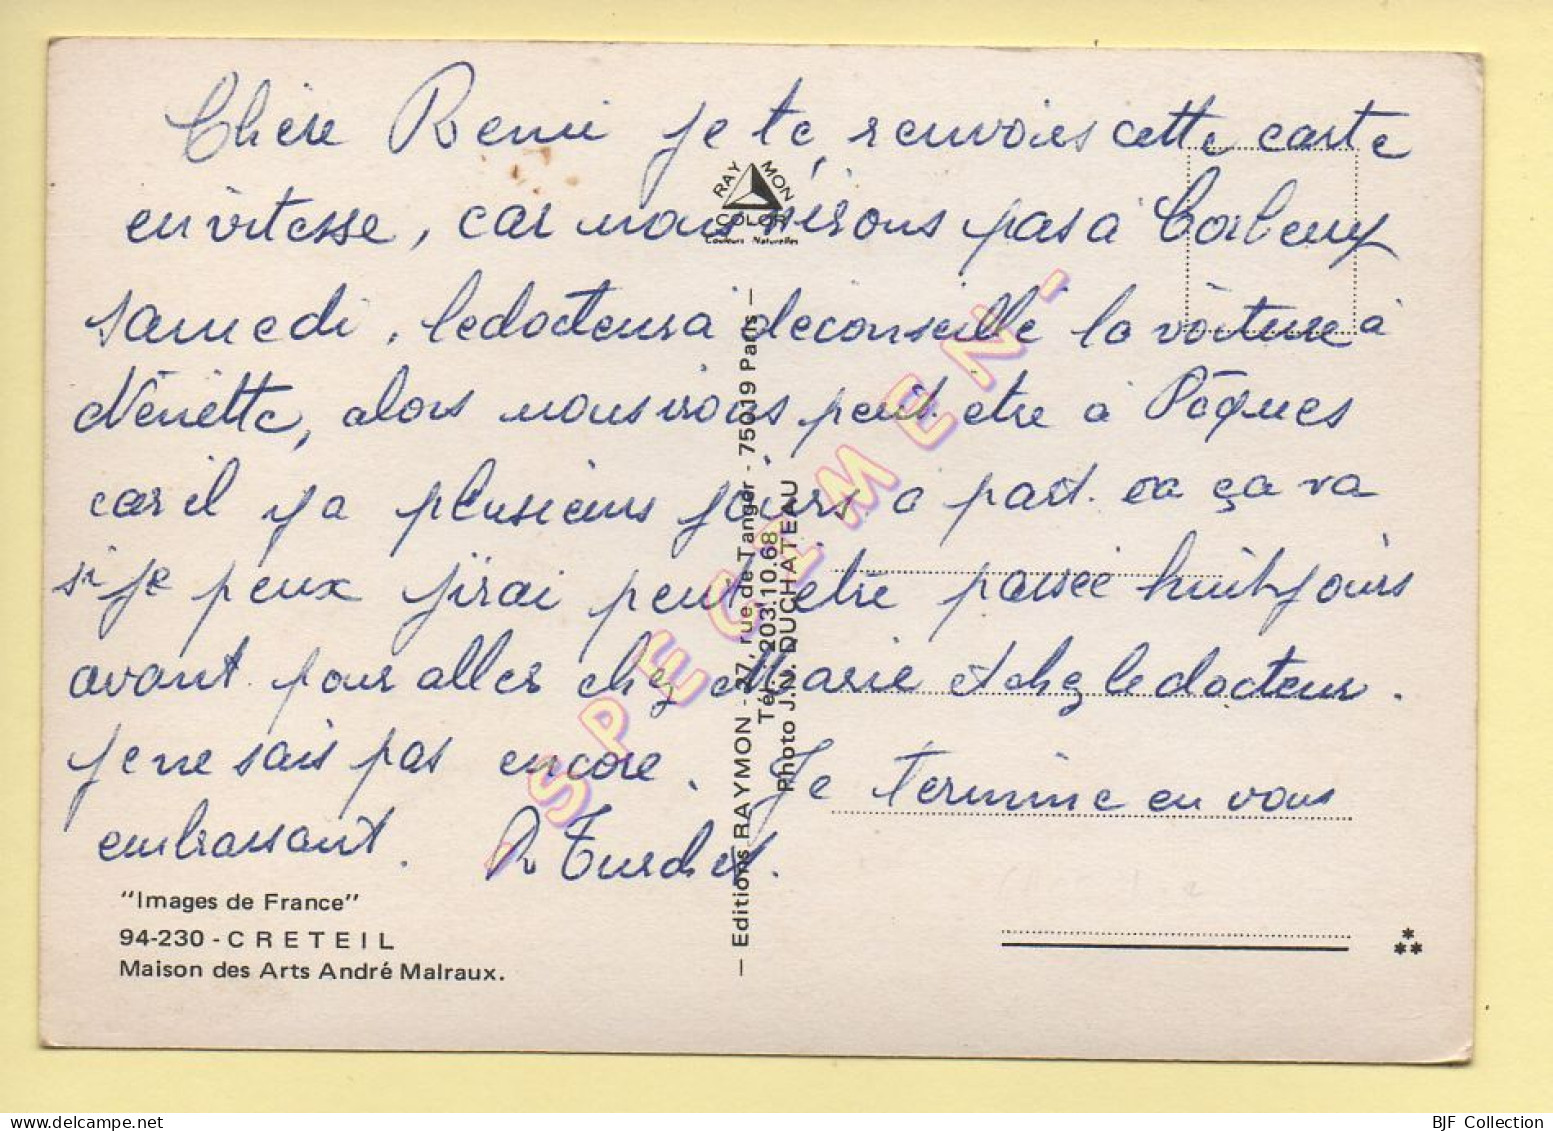 Chère Remi je te renvoies cette carte
en vitesse, car nous n'irons pas à Corbeny
samedi, le docteur a déconseillé la voiture à
Nénette, alors nous irons peut. etre à Pâques
car il y a plusieurs jours a part. ça va
si je peux j'irai peut être passée huit jours
avant pour aller chez Marie et chez le docteur.
je ne sais pas encore. Je termine en vous
embrassant. R Turchet.
RAYMON
COLOR
Couleurs Naturelles
— Editions RAYMON - 27, rue de Tanger - 75019 Paris —
Tél. 203.10.68
Photo J.N. DUCHATEAU
- SPECIMEN -
"Images de France"
94-230 - CRETEIL
Maison des Arts André Malraux.
BJF Collection